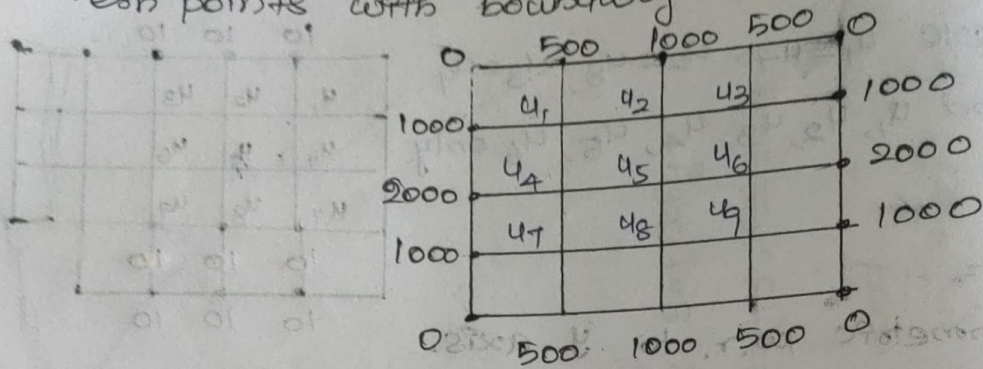 points with
0 500 1000 500 0
u1 u2 u3 1000
1000
u4 u5 u6 2000
2000
u7 u8 u9 1000
1000
0 500 1000 500 0